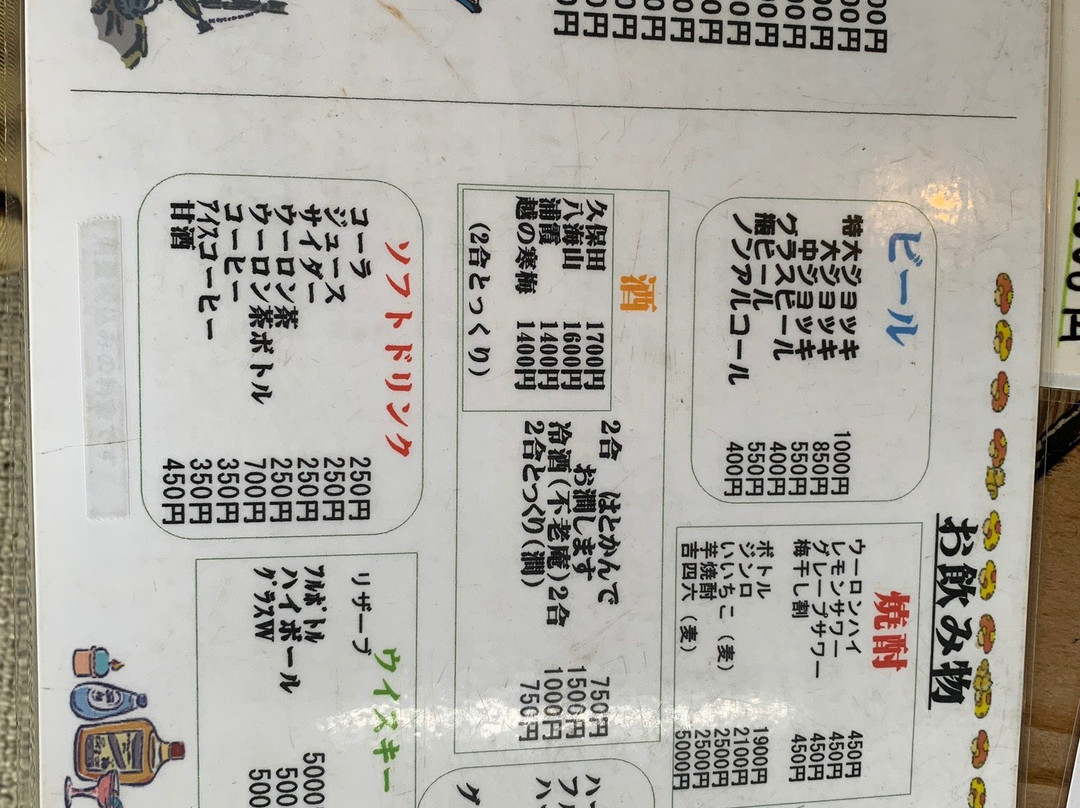 お飲み物
ビール
特大ジョッキ 1000円
大ジョッキ 850円
中ジョッキ 550円
グラスビール 400円
瓶ビール 550円
ノンアルコール 400円
焼酎
ウーロンハイ 450円
レモンサワー 450円
グレープサワー 450円
梅干し割 450円
ボトル 1900円
ジンロ 2100円
いいちこ（麦） 2500円
芋焼酎 2500円
吉四六（麦） 5000円
酒
久保田 1700円
八海山 1600円
浦霞 1400円
越の寒梅 1400円
(2合とっくり)
2合 はとかんで 750円
お潤します 1500円
冷酒(不老庵)2合 1000円
2合とっくり(潤) 750円
ソフトドリンク
コーラ 250円
ジュース 250円
サイダー 250円
ウーロン茶 250円
ウーロン茶ボトル 700円
コーヒー 350円
アイスコーヒー 350円
甘酒 450円
ウイスキー
リザーブ
フルボトル 5000
ハイボール 500
グラスW 500